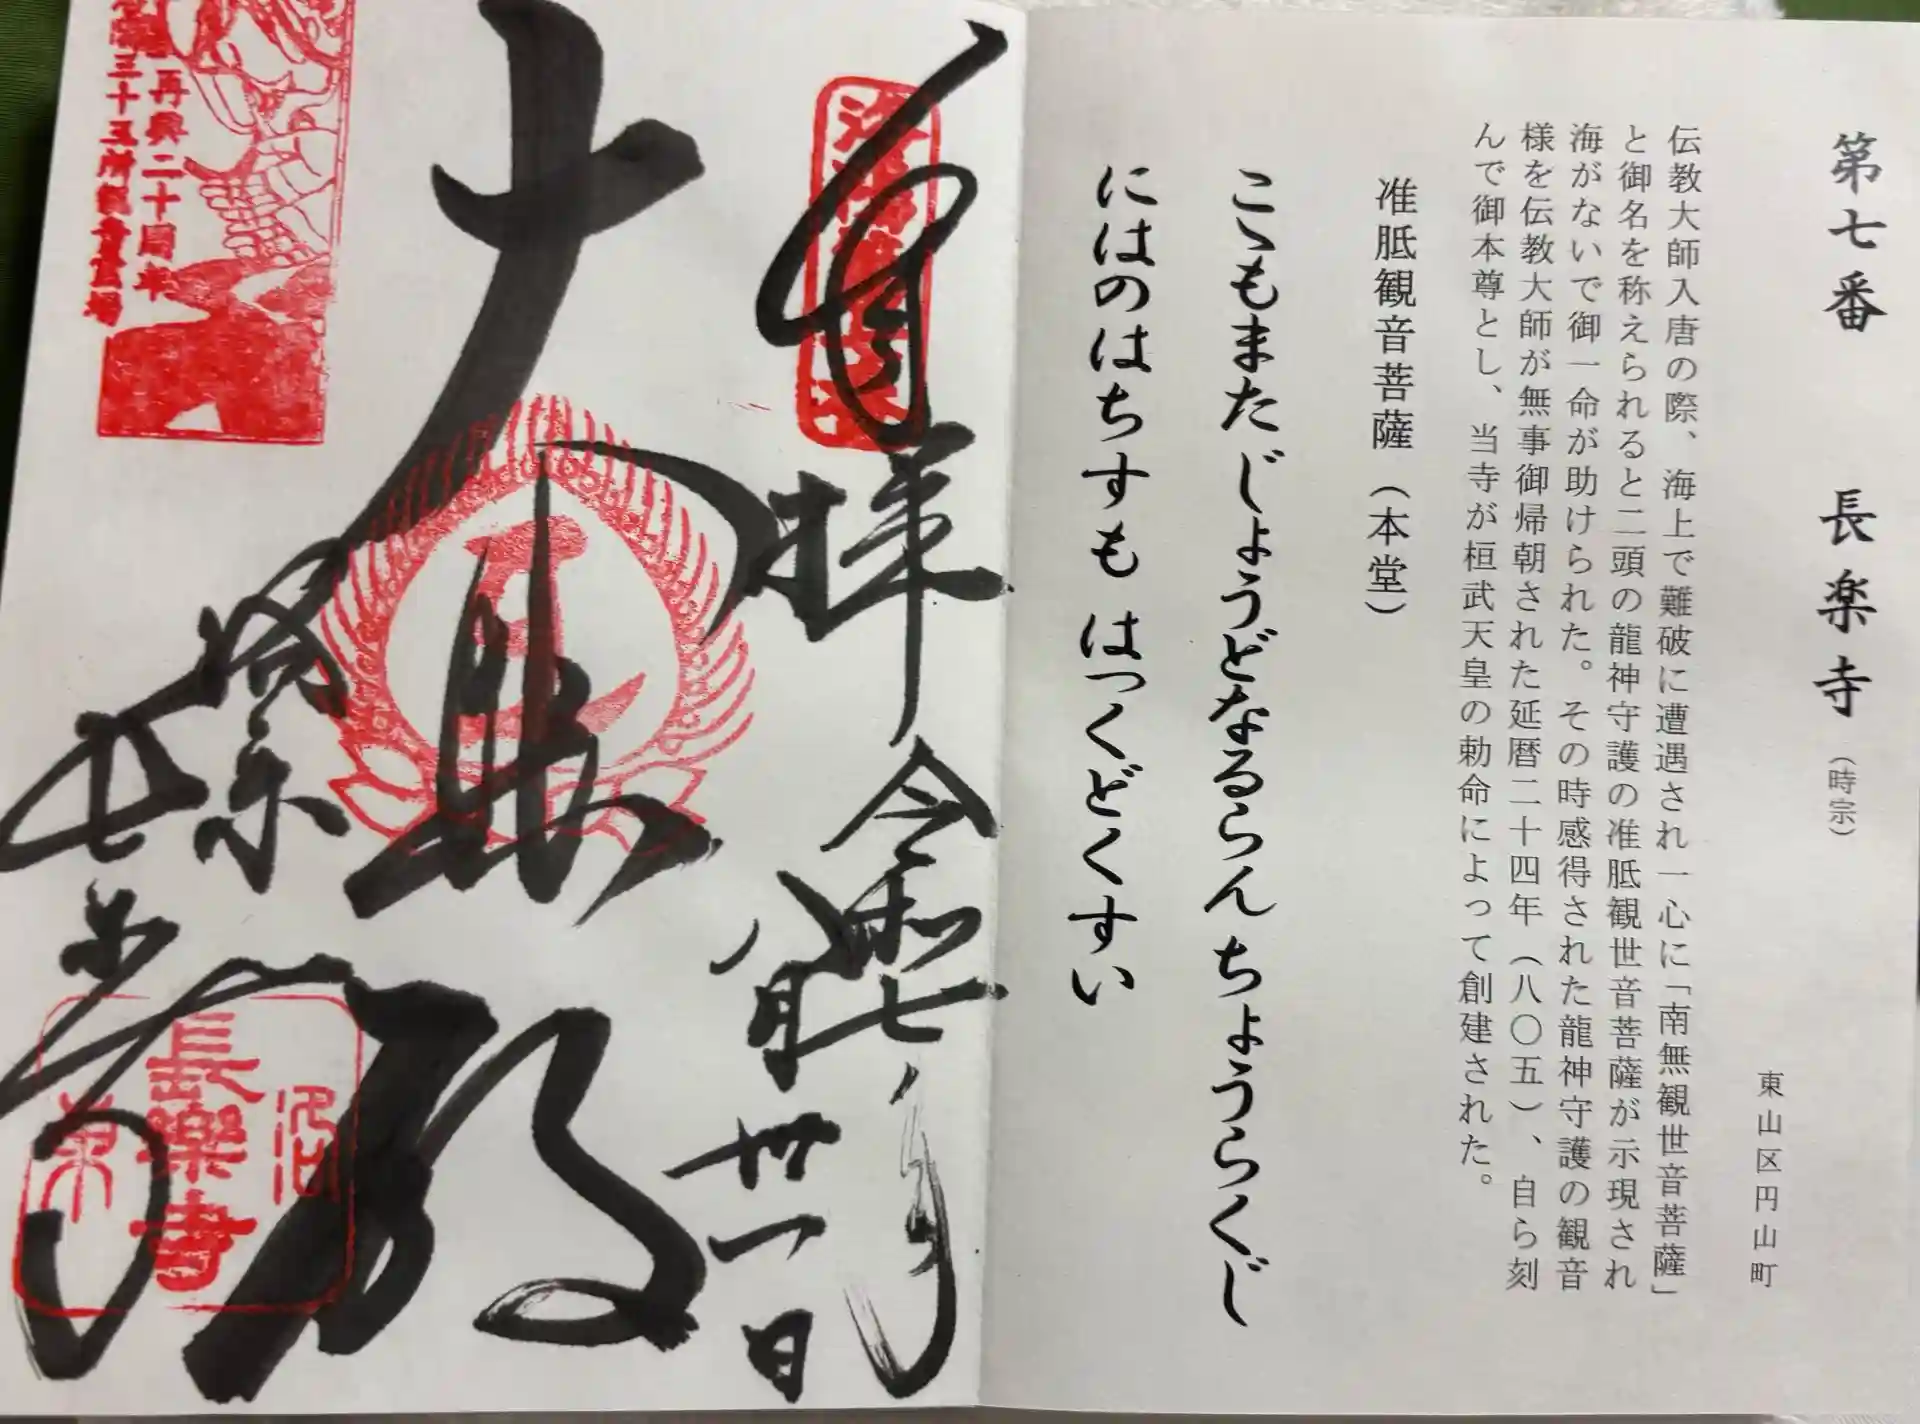 第七番　長楽寺（時宗）
東山区円山町
伝教大師入唐の際、海上で難破に遭遇され一心に「南無観世音菩薩」
と御名を称えられると二頭の龍神守護の准胝観世音菩薩が示現され
海がないで御一命が助けられた。その時感得された龍神守護の観音
様を伝教大師が無事御帰朝された延暦二十四年（八〇五）、自ら刻
んで御本尊とし、当寺が桓武天皇の勅命によって創建された。
准胝観音菩薩（本堂）
こゝもまた じょうどなるらん ちょうらくじ
にはのはちすも はっくどくすい
奉拝 令和七年
八月卅一日
大悲殿
長楽寺
再興二十周年
三十三所観音霊場
長樂寺